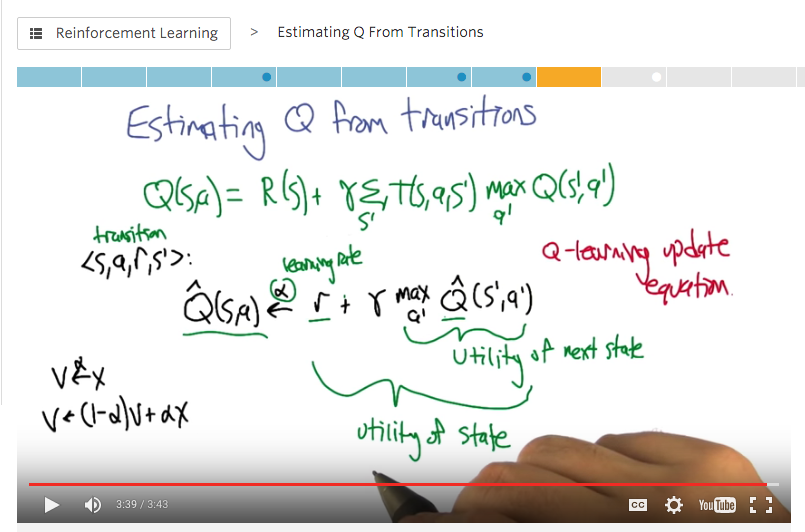 Reinforcement Learning > Estimating Q From Transitions
Estimating Q from transitions
Q(s,a) = R(s) + γ Σ T(s,a,s') max Q(s',a')
s' a'
transition
<s,a,r,s'>:
learning rate
Q-learning update
equation.
Q̂(s,a) ←α r + γ max Q̂(s',a')
a'
utility of next state
V ←α X
V ← (1-α)V + αX
utility of state
3:39 / 3:43
CC
YouTube